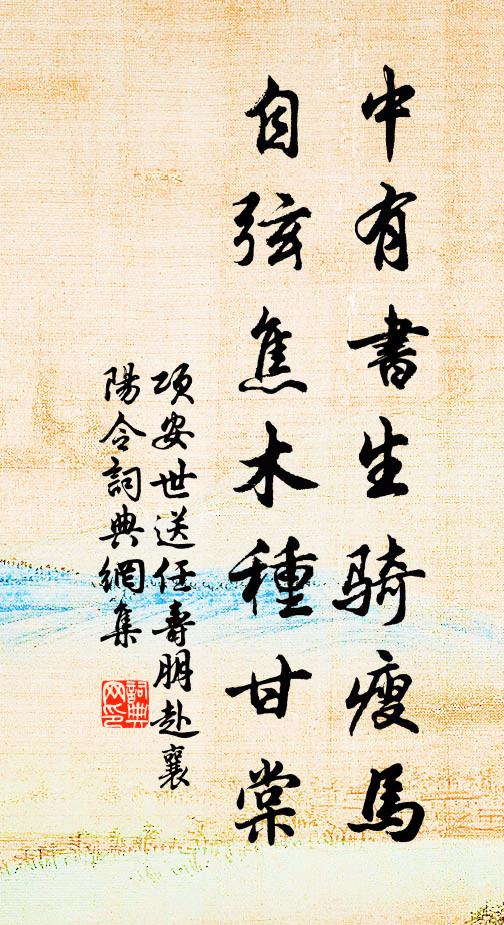 中有書生騎瘦馬
自弦焦木種甘棠
項安世送任壽朋赴襄
陽令詞典網集
詞典
网印